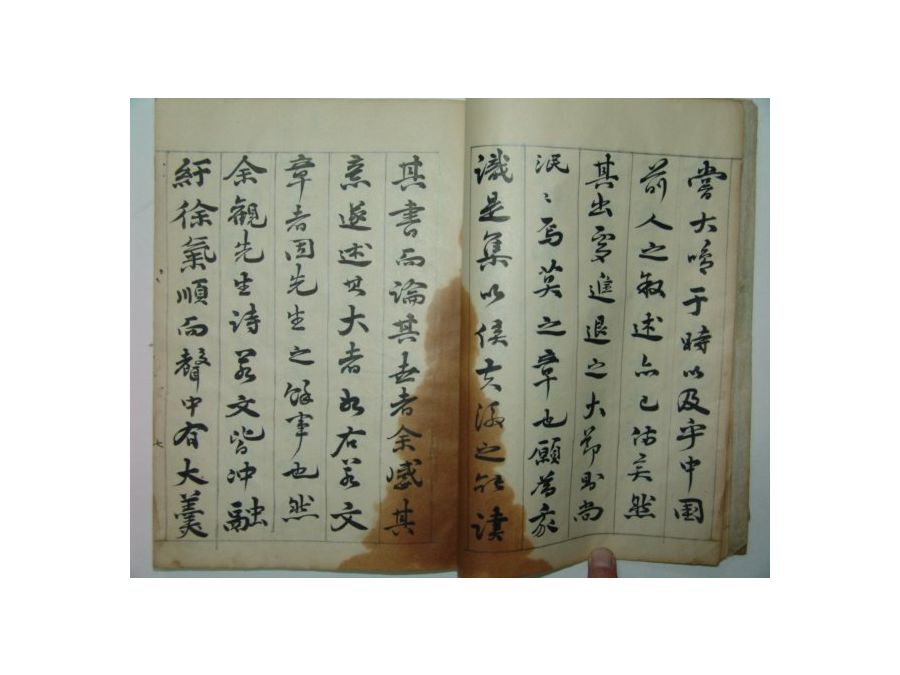 嘗大鳴于時以及乎中国
前人之叙述亦已偹矣然
其出處進退之大節則尚
泯〻焉莫之章也願爲敍
識是集以俟夫後之能讀
其書而論其世者余感其
意遂述其大者如右若文
章者固先生之餘事也然
余觀先生詩若文皆冲融
紆徐氣順而聲中有大羹
七